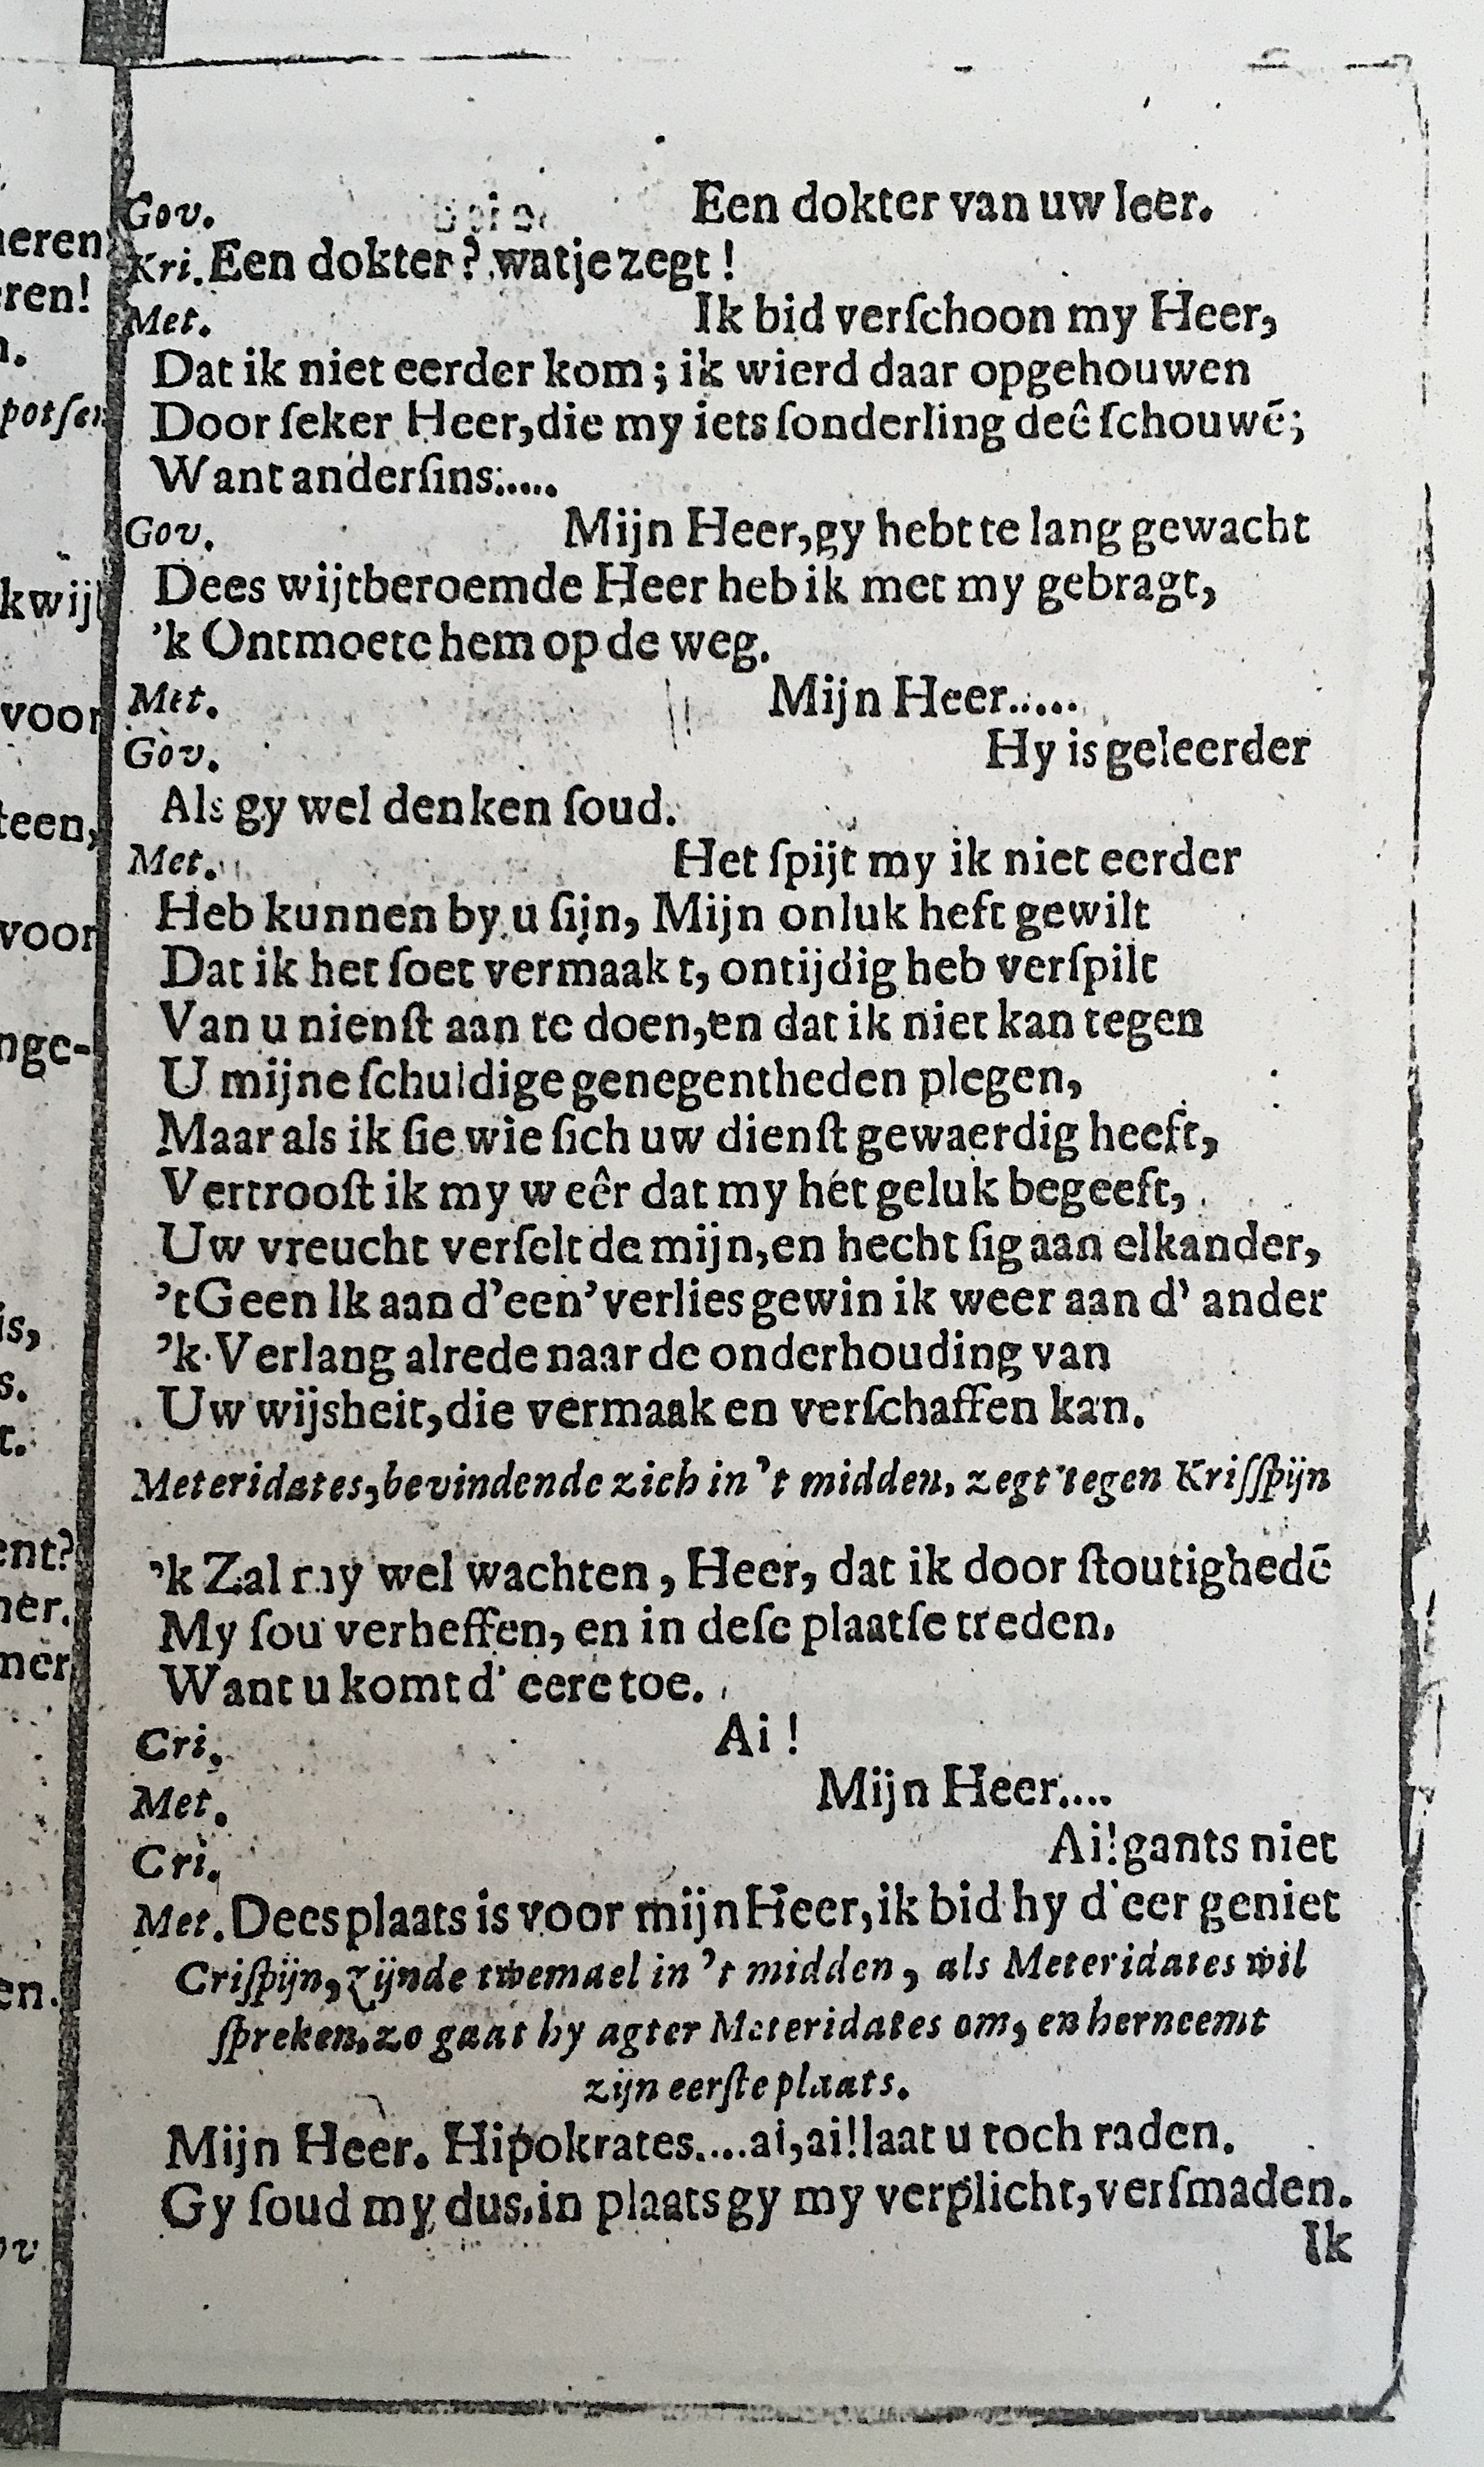 Gov. Een dokter van uw leer.
Kri. Een dokter? wat je zegt!
Met. Ik bid verſchoon my Heer,
Dat ik niet eerder kom; ik wierd daar opgehouwen
Door ſeker Heer, die my iets ſonderling deê ſchouwē;
Want anderſins:....
Gov. Mijn Heer, gy hebt te lang gewacht
Dees wijtberoemde Heer heb ik met my gebragt,
'k Ontmoete hem op de weg.
Met. Mijn Heer.....
Gov. Hy is geleerder
Als gy wel denken ſoud.
Met. Het ſpijt my ik niet eerder
Heb kunnen by u ſijn, Mijn onluk heft gewilt
Dat ik het ſoet vermaak t, ontijdig heb verſpilt
Van u nienſt aan te doen, en dat ik niet kan tegen
U mijne ſchuldige genegentheden plegen,
Maar als ik ſie wie ſich uw dienſt gewaerdig heeft,
Vertrooſt ik my weêr dat my het geluk begeeft,
Uw vreucht verſelt de mijn, en hecht ſig aan elkander,
't Geen Ik aan d'een' verlies gewin ik weer aan d' ander
'k Verlang alrede naar de onderhouding van
Uw wijsheit, die vermaak en verſchaffen kan.
Meteridates, bevindende zich in 't midden, zegt tegen Kriſſpijn
'k Zal my wel wachten, Heer, dat ik door ſtoutighedē
My ſou verheffen, en in deſe plaatſe treden,
Want u komt d' eere toe.
Cri. Ai!
Met. Mijn Heer....
Cri. Ai! gants niet
Met. Dees plaats is voor mijn Heer, ik bid hy d'eer geniet
Criſpijn, zijnde twemael in 't midden, als Meteridates wil
ſpreken, zo gaat hy agter Meteridates om, en herneemt
zijn eerſte plaats.
Mijn Heer. Hipokrates....ai, ai! laat u toch raden.
Gy ſoud my dus, in plaats gy my verplicht, verſmaden.
Ik
neren
ren!
potſen
kwijl
voor
teen,
voor
nge-
is,
s.
t.
ent?
ner.
ner
en.
ov